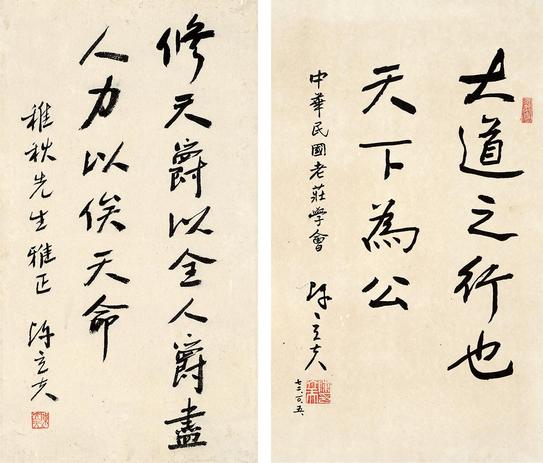 大道之行也
天下為公
中華民國老莊學會
陳立夫
七二、六、五、
修天爵以全人爵盡
人力以俟天命
稚秋先生雅正
陳立夫